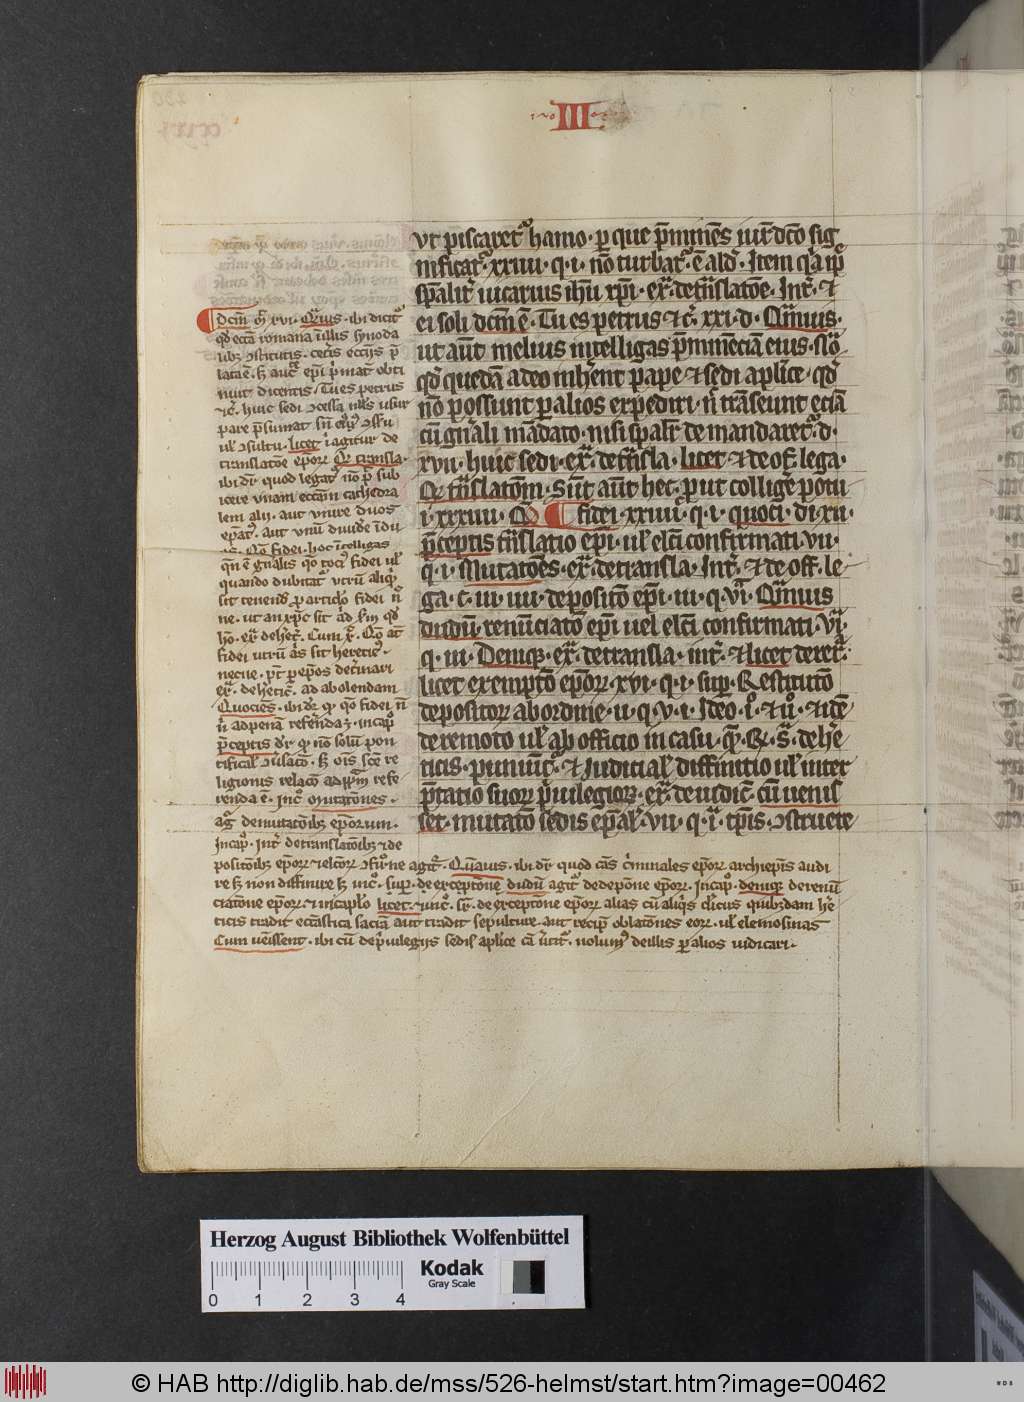 III
ut piscaret hamo · p que pminēs iur̄ dcō sig
nificat · xxiiii · q · i · nō turbat ē ald · Item q̄a ip̄e
spālit uicarius ihū xp̄i · ex̄ de trāslatōe · Int̄ · ⁊
ei soli dcm̄ ē · Tu es petrus ⁊c̄ · xxi · d · Quāuis ·
ut aūt melius intelligas pminēciā eius · Nō
qd quedā adeo inherent pape ⁊ sedi aplice · qd
nō possunt p alios expediri · n̄ trāseunt eciā
cū gn̄ali mādato · nisi spalr̄ de mandaret · d ·
xvii · huic sedi · ex̄ de trāsla · licet ⁊ de of lega ·
Qr trāslatōm · Sūt aūt hec · put colligē potu
i · xxiiii · Qō fidei · xxiiii · q · i · quoci · di · xii ·
pceptis trāslatio epi · ul elcī confirmati · vii ·
q · i · Mutatōes · ex̄ de transla · Int̄ ⁊ de off · le
ga · c · iii · iiii · depositō epi · iii · q · vi · Quāuis
dudū · renūciatō epi uel elcī confirmati · vi ·
q · iii · Deniq · ex̄ de transla · int̄ · ⁊ licet de ret ·
licet exemptō epor · xvi · q · i · sup · Restitutō
depositor ab ordine · ii · q · v · i · Ideo · i · ⁊ ii · ⁊ idē
de remoto ul ab officio in casu · q · R · s · de he
ticis · puniunt · ⁊ Judicial diffinitio ul inter
ptatio suor puilegior · ex̄ de iudic · cū uenis
set · mutatō sedis epal · vii · q · i · tpis · ꝯstruete
Dcm̄ ē xvi · Quāuis · ibi dicit
qd eccā romana nullis synoda
libz ꝯstitutis · ceteris eccijs p
lata ē · s aucte epi p̄mat obti
nuit dicentis · Tu es petrus
⁊c̄ · huic sedi ꝯcessa nulls usur
pare psumat sn̄ eius ꝯssu
ul ꝯsultu · licet iagitur de
translatōe epor · Qr transla ·
ibi dr quod legat nō pt sub
icere vnam eccam cathedra
lem alij · aut vnire duos
epat · aut vnū diuide ī du
os · Qō fidei · hoc intelligas
qn̄ ē gn̄alis qō toci fidei ul
quando dubitat utrū aliq
sit tenend p articlo fidei n̄
ne · ut an xp̄c sit ad s'm qd
hō · ex̄ de het · Cum x · Qō at
fidei utrū als sit hereticus
necne · pt p epos det'mari
ex̄ · de hetic · ad abolendam
Quociēs · ibi dr q qō fidei n
n ad penā referēda ē · incap
pceptis dr q nō solū pon
tifical ꝯsulacō · s oīs sce re
ligionis relacō ad ppm refe
renda ē · Inc mutatōnes ·
ag demutatōibz eporum ·
Incap · Int de translatōibz ⁊ de
positōibz epor ⁊ elcor ꝯfirne agit · Quāuis · ibi dr quod cās criminales epor archiepis audi
re s non diffinire s inc · sup · de exceptōne dudū agit de depōne epor · Incap · deniq de renū
ciatōne epor · ⁊ incaplo licet · ⁊ inc · sr · de exceptōne epor alias cū aliqs clicus quibzdam he
ticis tradit eccastica sacra aut tradit sepulture aut recip oblatōnes eor · ul elemosinas
Cum uenissent · ibi cū de puilegijs sedis aplice cā uertit · nolum deillis p alios iudicari ·
Herzog August Bibliothek Wolfenbüttel
Kodak
Gray Scale
0 1 2 3 4
© HAB http://diglib.hab.de/mss/526-helmst/start.htm?image=00462